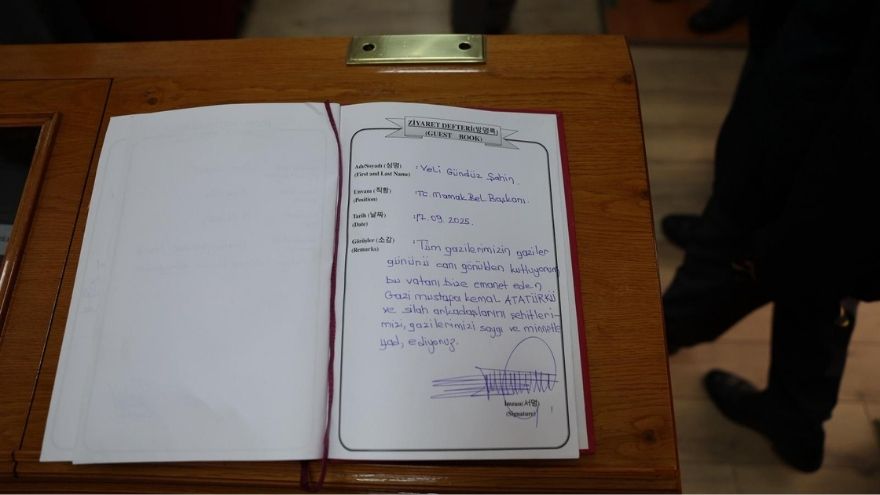 ZİYARET DEFTERİ(방명록)
(GUEST BOOK)
Adı/Soyadı (성명) : Veli Gündüz Şahin.
(First and Last Name)
Unvanı (직함) : TC. Mamak Bel Başkanı.
(Position)
Tarih (날짜) : 17.09.2025.
(Date)
Görüşler (소감) : Tüm gazilerimizin gaziler
(Remarks)
gününü canı gönülden kutluyorum,
bu vatanı bize emanet eden
Gazi mustapa kemal ATATÜRKÜ
ve silah arkadaşlarını şehitleri-
mizi, gazilerimizi saygı ve minnetle
yad, ediyoruz.
İmzası(서명)
(Signature)